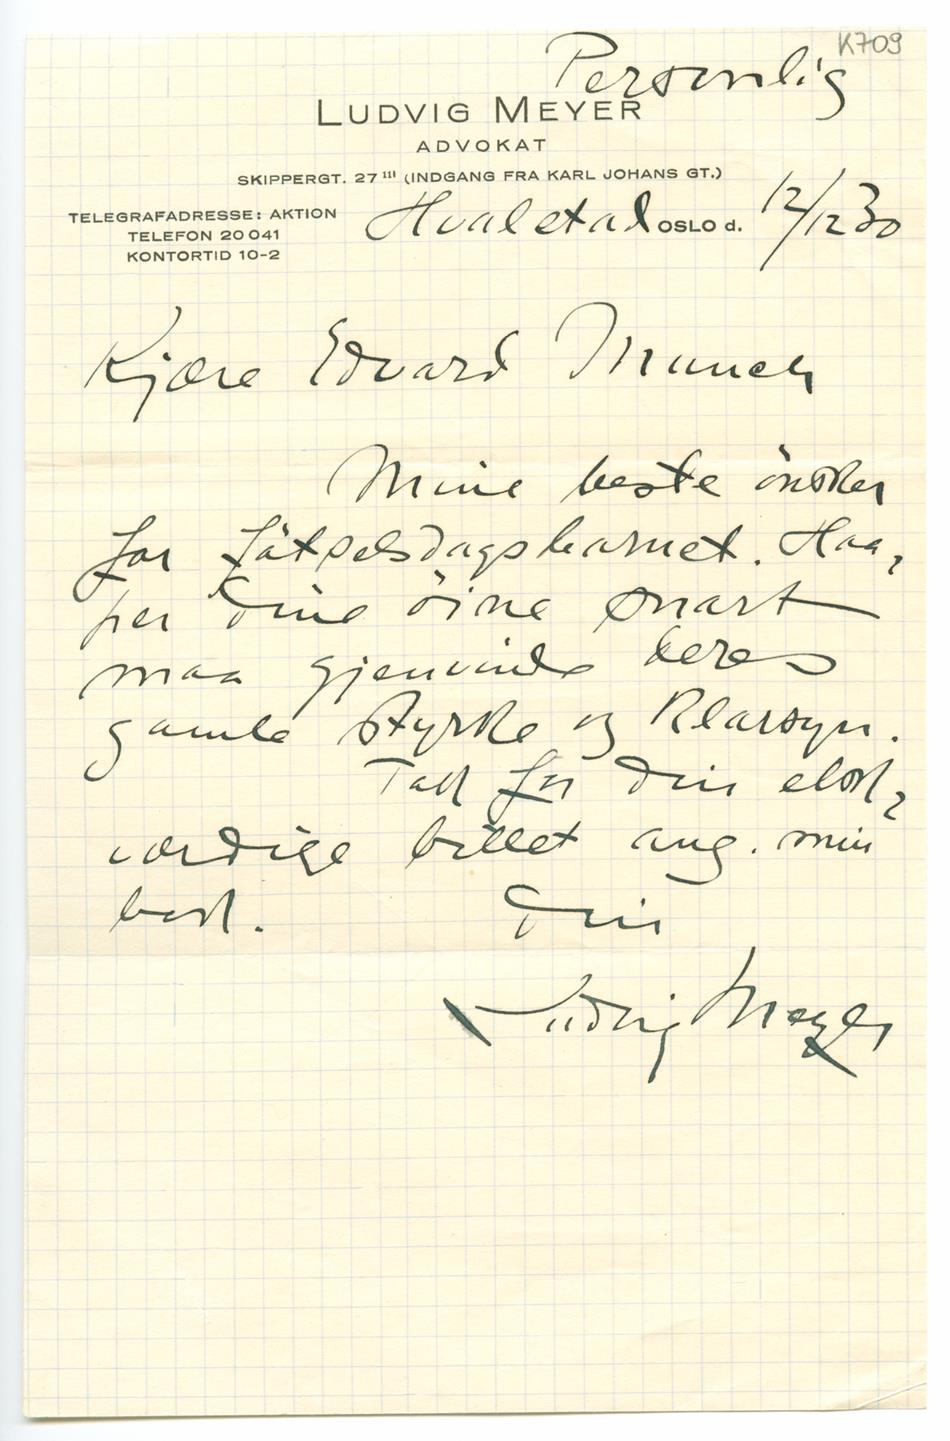 K709
Personlig
LUDVIG MEYER
ADVOKAT
SKIPPERGT. 27 III (INDGANG FRA KARL JOHANS GT.)
TELEGRAFADRESSE: AKTION
TELEFON 20041
KONTORTID 10-2
Hvalstad OSLO d. 12/12 30
Kjære Edvard Munch
Mine beste önsker
for fötselsdagsbarnet. Haa,
per dine öine snart
maa gjenvinde deres
gamle styrke og klarsyn.
Takk for din elsk,
værdige billet ang. min
bok. Din
Ludvig Meyer